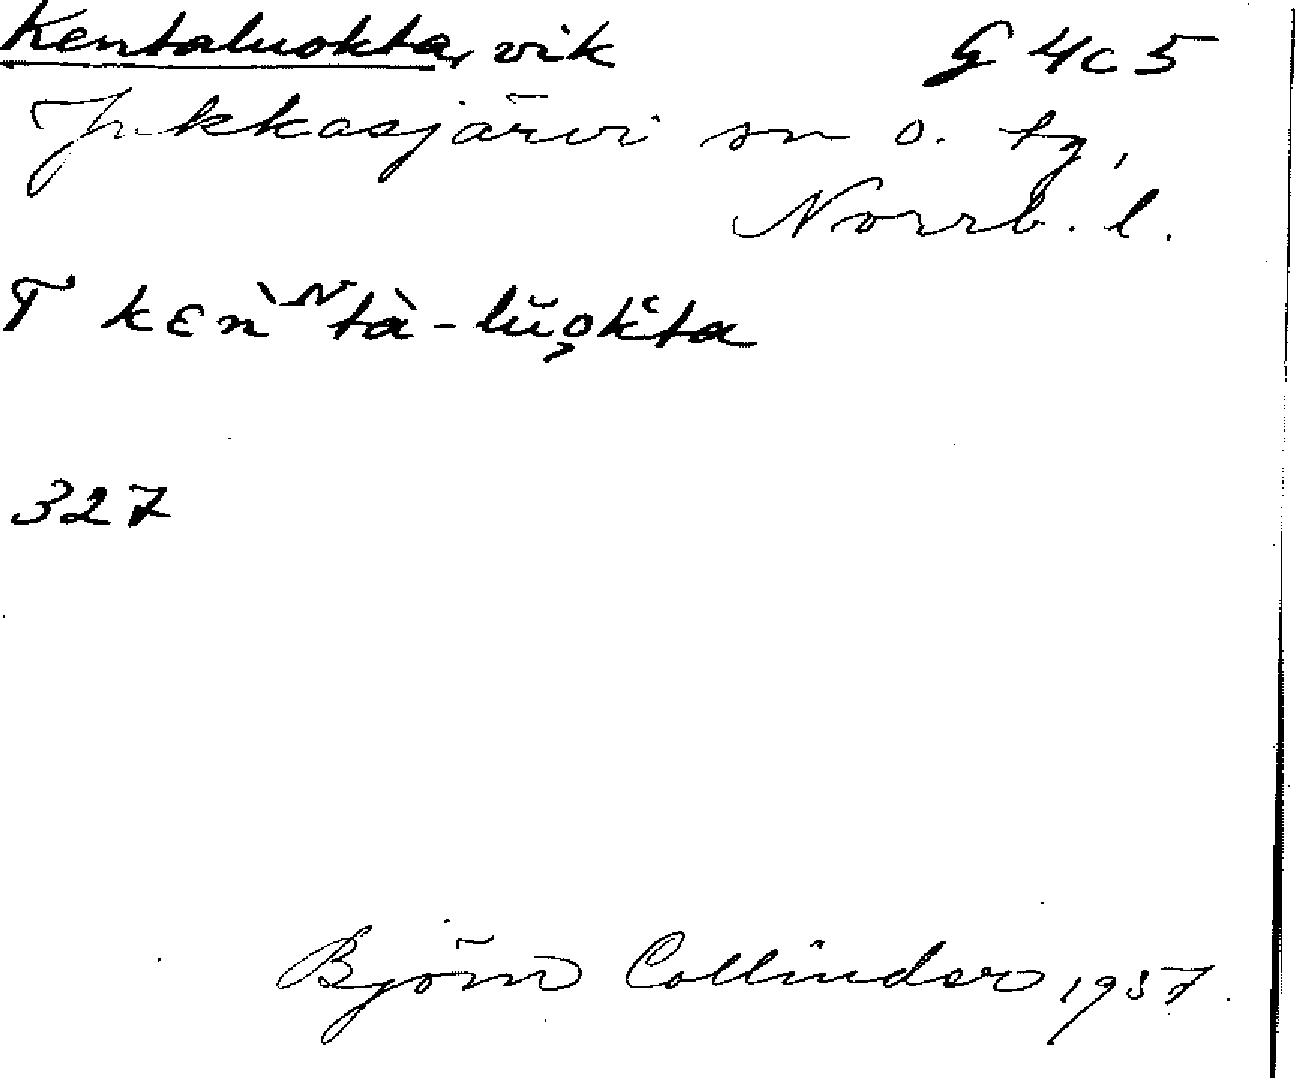 Kentaluokta, vik G 4c 5
Jukkasjärvi sn o. tg,
Norrb. l.
T kɛǹᴺtà-lŭo̦k̆ta
327
Björn Collinder 1937.